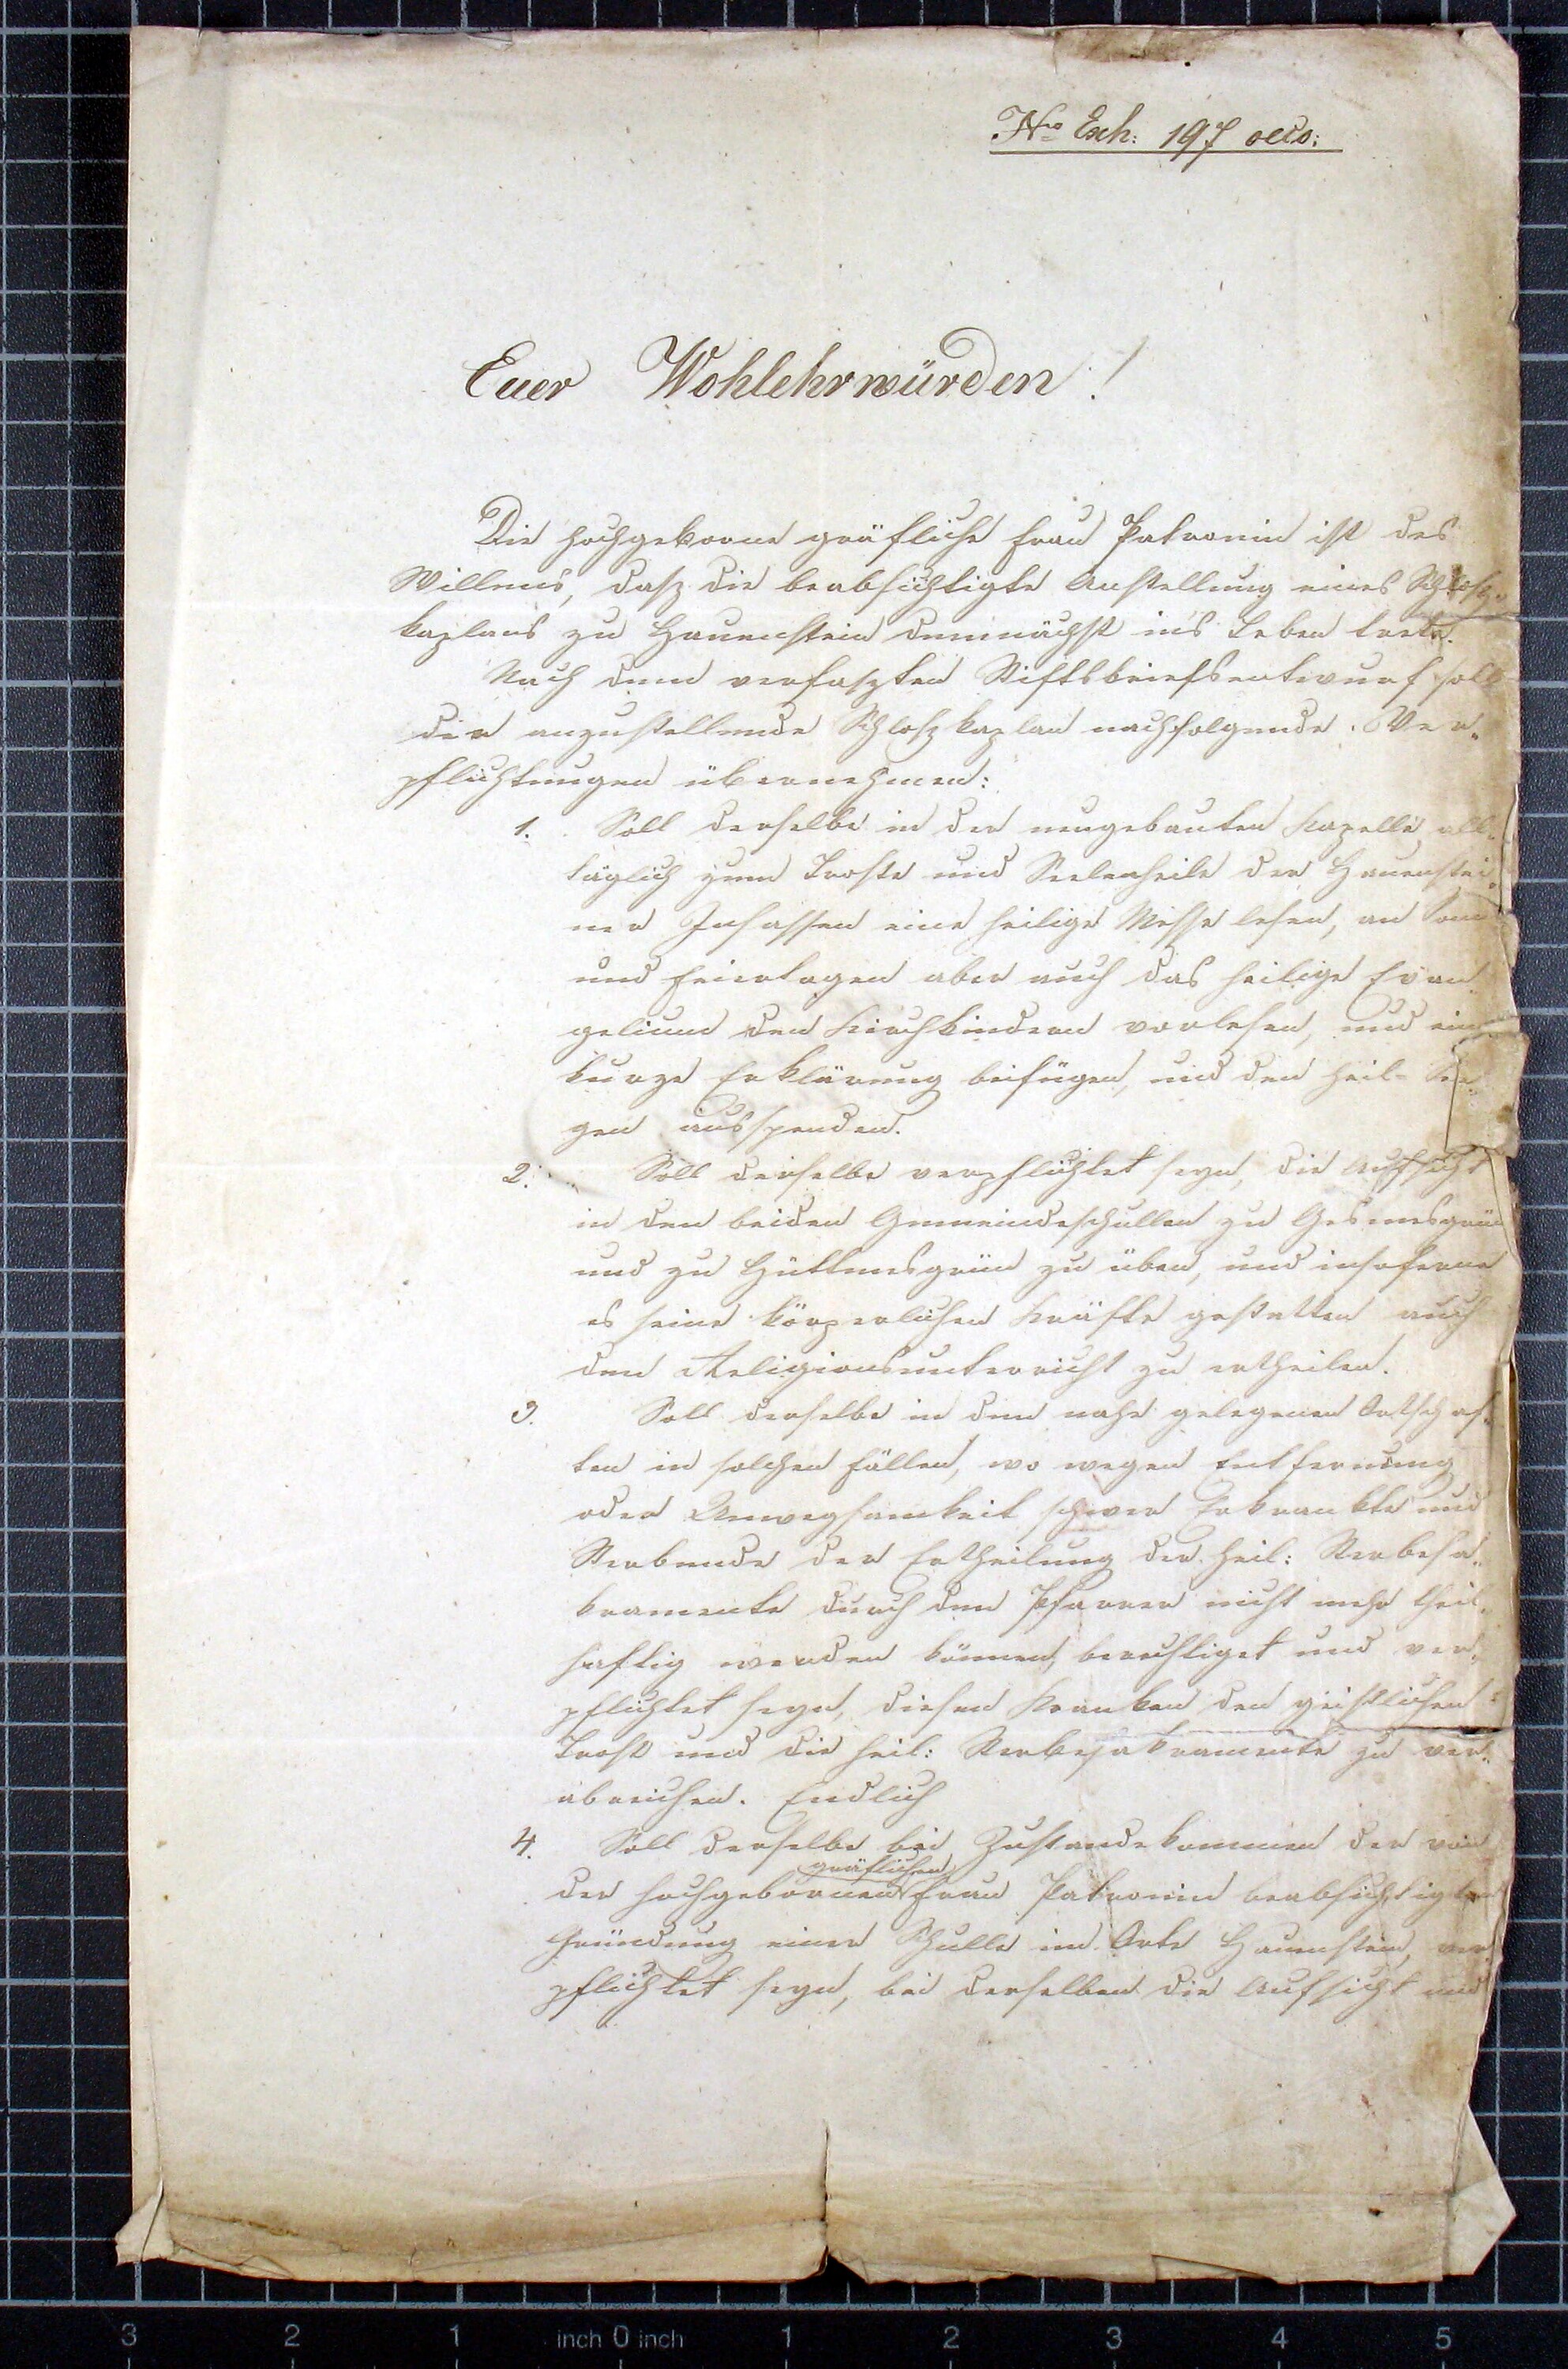 Nro Exh: 197 oeco:
Euer Wohlehrwürden!
Die hochgeborne gräfliche Frau Patronin ist des
Willens, dasz die beabsichtigte Anstellung eines Schlosz„
kaplans zu Hauenstein demnächst ins Leben trete.
Nach dem verfaszten Stiftsbriefsentwurf soll
der anzustellende Schloszkaplan nachfolgende Ver„
pflichtungen übernehmen:
1. Soll derselbe in der neugebauten Kapelle all„
täglich zum Troste und Seelenheile der Hauenstei„
ner Insassen eine heilige Messe lesen, an Sonn
und Feiertagen aber auch das heilige Evan„
gelium den Kirchkindern vorlesen, und eine
kurze Erklärung beifügen, und den heil- See„
gen ausspenden.
2. Soll derselbe verpflichtet seyn, die Aufsicht
in den beiden Gemeindeschullen zu Gesmesgrün
und zu Hüttmesgrün zu üben, und insoferne
es seine körperlichen Kräfte gestatten auch
den Religionsunterricht zu ertheilen.
3. Soll derselbe in den nahe gelegenen Ortschaf„
ten in solchen Fällen, wo wegen Entfernung
oder Unwegsamkeit schwer Erkrankte und
Sterbende der Ertheilung der heil: Sterbesa„
kramente durch den Pfarrer nicht mehr theil„
haftig werden können, berechtiget und ver„
pflichtet seyn, diesen Kranken den geistlichen
Trost und die heil: Sterbesakramente zu ver„
abreichen. Endlich
4. Soll derselbe bei Zustandekommen der von
gräflichen
der hochgebornen Frau Patronin beabsichtigten
Gründung einer Schulle im Orte Hauenstein, ver„
pflichtet seyn, bei derselben die Aufsicht und